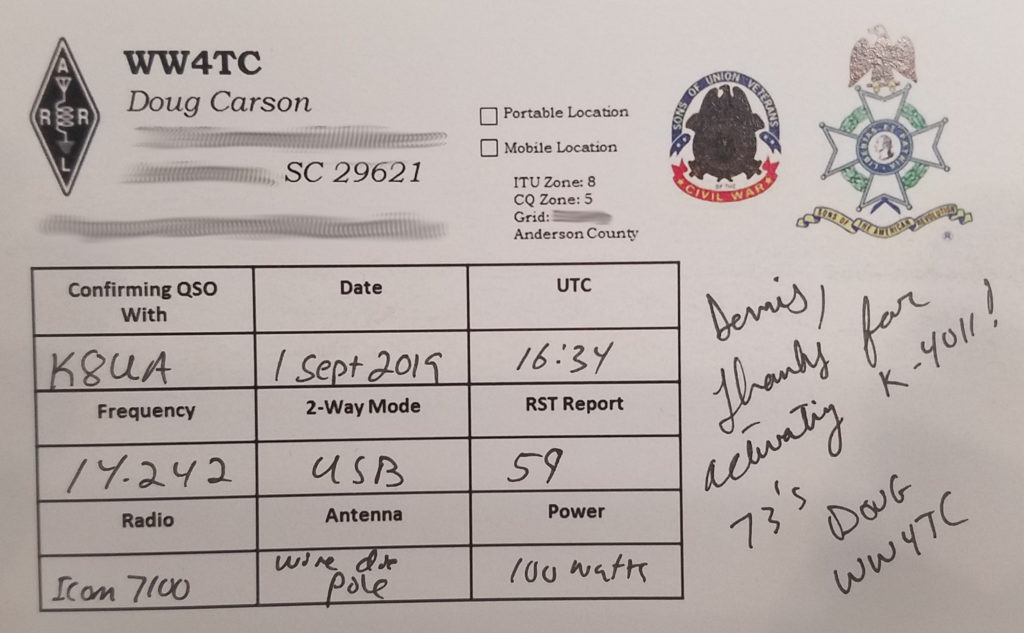 ARRL
WW4TC
Doug Carson
SC 29621
Portable Location
Mobile Location
ITU Zone: 8
CQ Zone: 5
Grid:
Anderson County
SONS OF UNION VETERANS
OF THE
CIVIL WAR
LIBERTAS ET PATRIA
SONS OF THE AMERICAN REVOLUTION
®
Confirming QSO With
Date
UTC
K8UA
1 Sept 2019
16:34
Frequency
2-Way Mode
RST Report
14.242
USB
59
Radio
Antenna
Power
Icom 7100
wire di
pole
100 watts
Dennis,
thanks for
activating K-4011!
73's DOUG
WW4TC